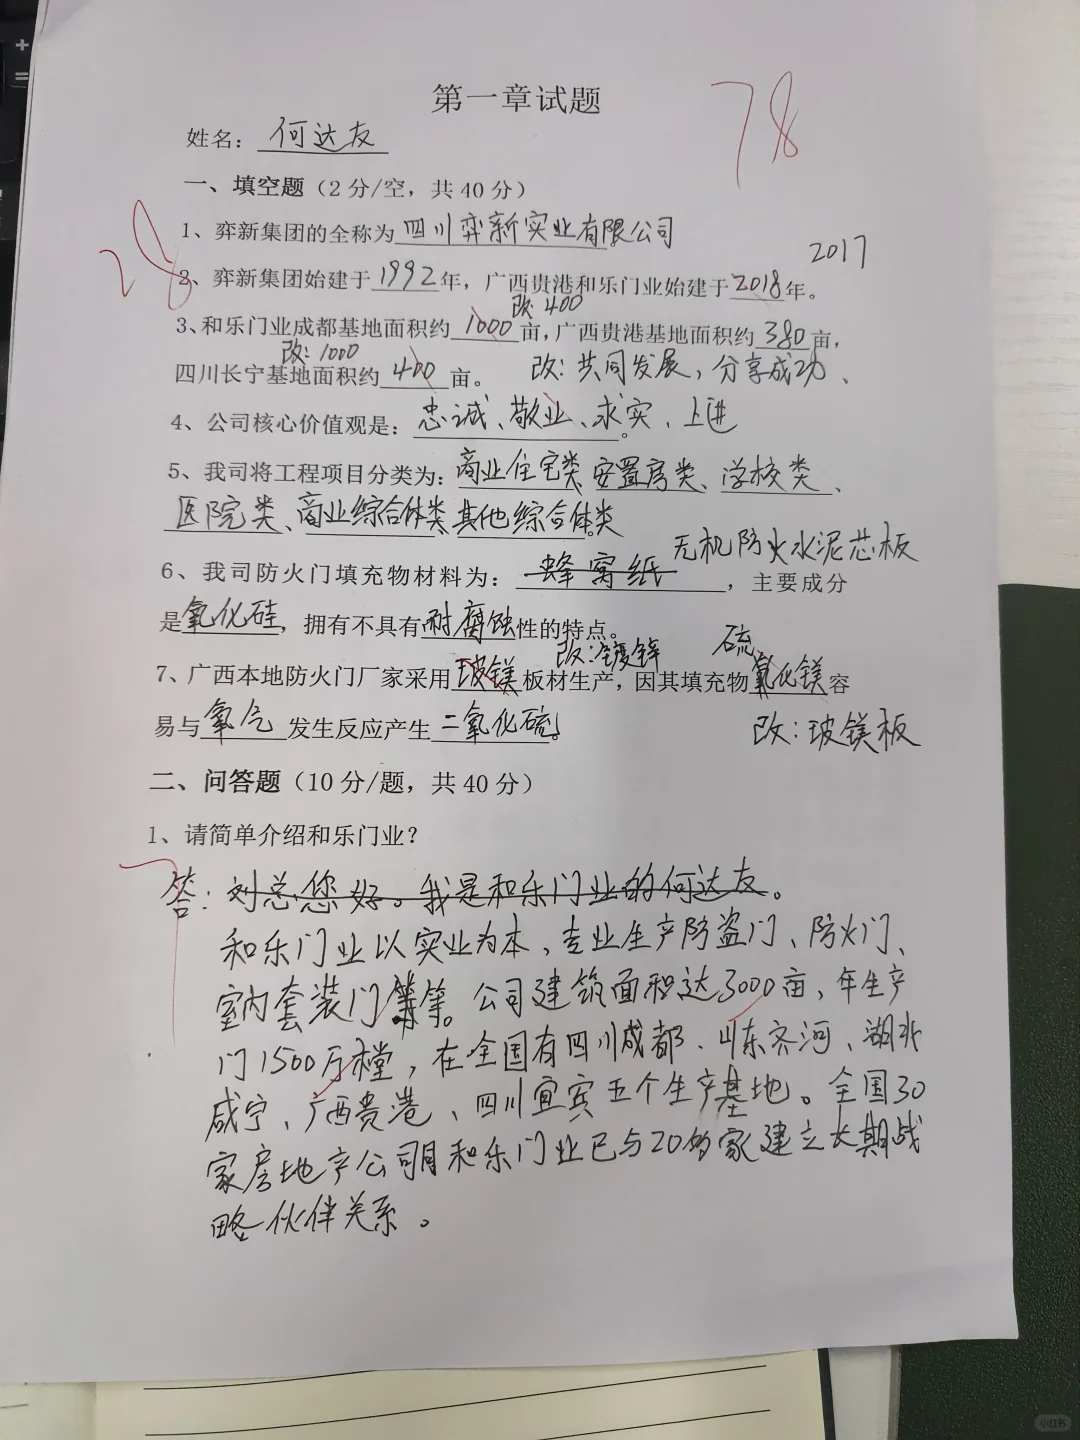 第一章试题
78
姓名：何达友
一、填空题（2分/空，共40分）
28
1、弈新集团的全称为四川弈新实业有限公司
2017
2、弈新集团始建于1992年，广西贵港和乐门业始建于2018年。
改：400
3、和乐门业成都基地面积约1000亩，广西贵港基地面积约380亩，
改：1000
四川长宁基地面积约400亩。 改：共同发展，分享成功、
4、公司核心价值观是：忠诚、敬业、求实、上进。
5、我司将工程项目分类为：商业住宅类、安置房类、学校类、
医院类、商业综合体类、其他综合体类。
无机防火水泥芯板
6、我司防火门填充物材料为：蜂窝纸，主要成分
是氧化硅，拥有不具有耐腐蚀性的特点。
改：镀锌 硫
7、广西本地防火门厂家采用玻镁板材生产，因其填充物氧化镁容
易与氧气发生反应产生二氧化硫。 改：玻镁板
二、问答题（10分/题，共40分）
1、请简单介绍和乐门业？
7
答：刘总您好。我是和乐门业的何达友。
和乐门业以实业为本，专业生产防盗门、防火门、
室内套装门等等。公司建筑面积达3000亩，年生产
门1500万樘，在全国有四川成都、山东齐河、湖北
咸宁、广西贵港、四川宜宾五个生产基地。全国30
家房地产公司用和乐门业已与20的家建立长期战
略伙伴关系。
小红书